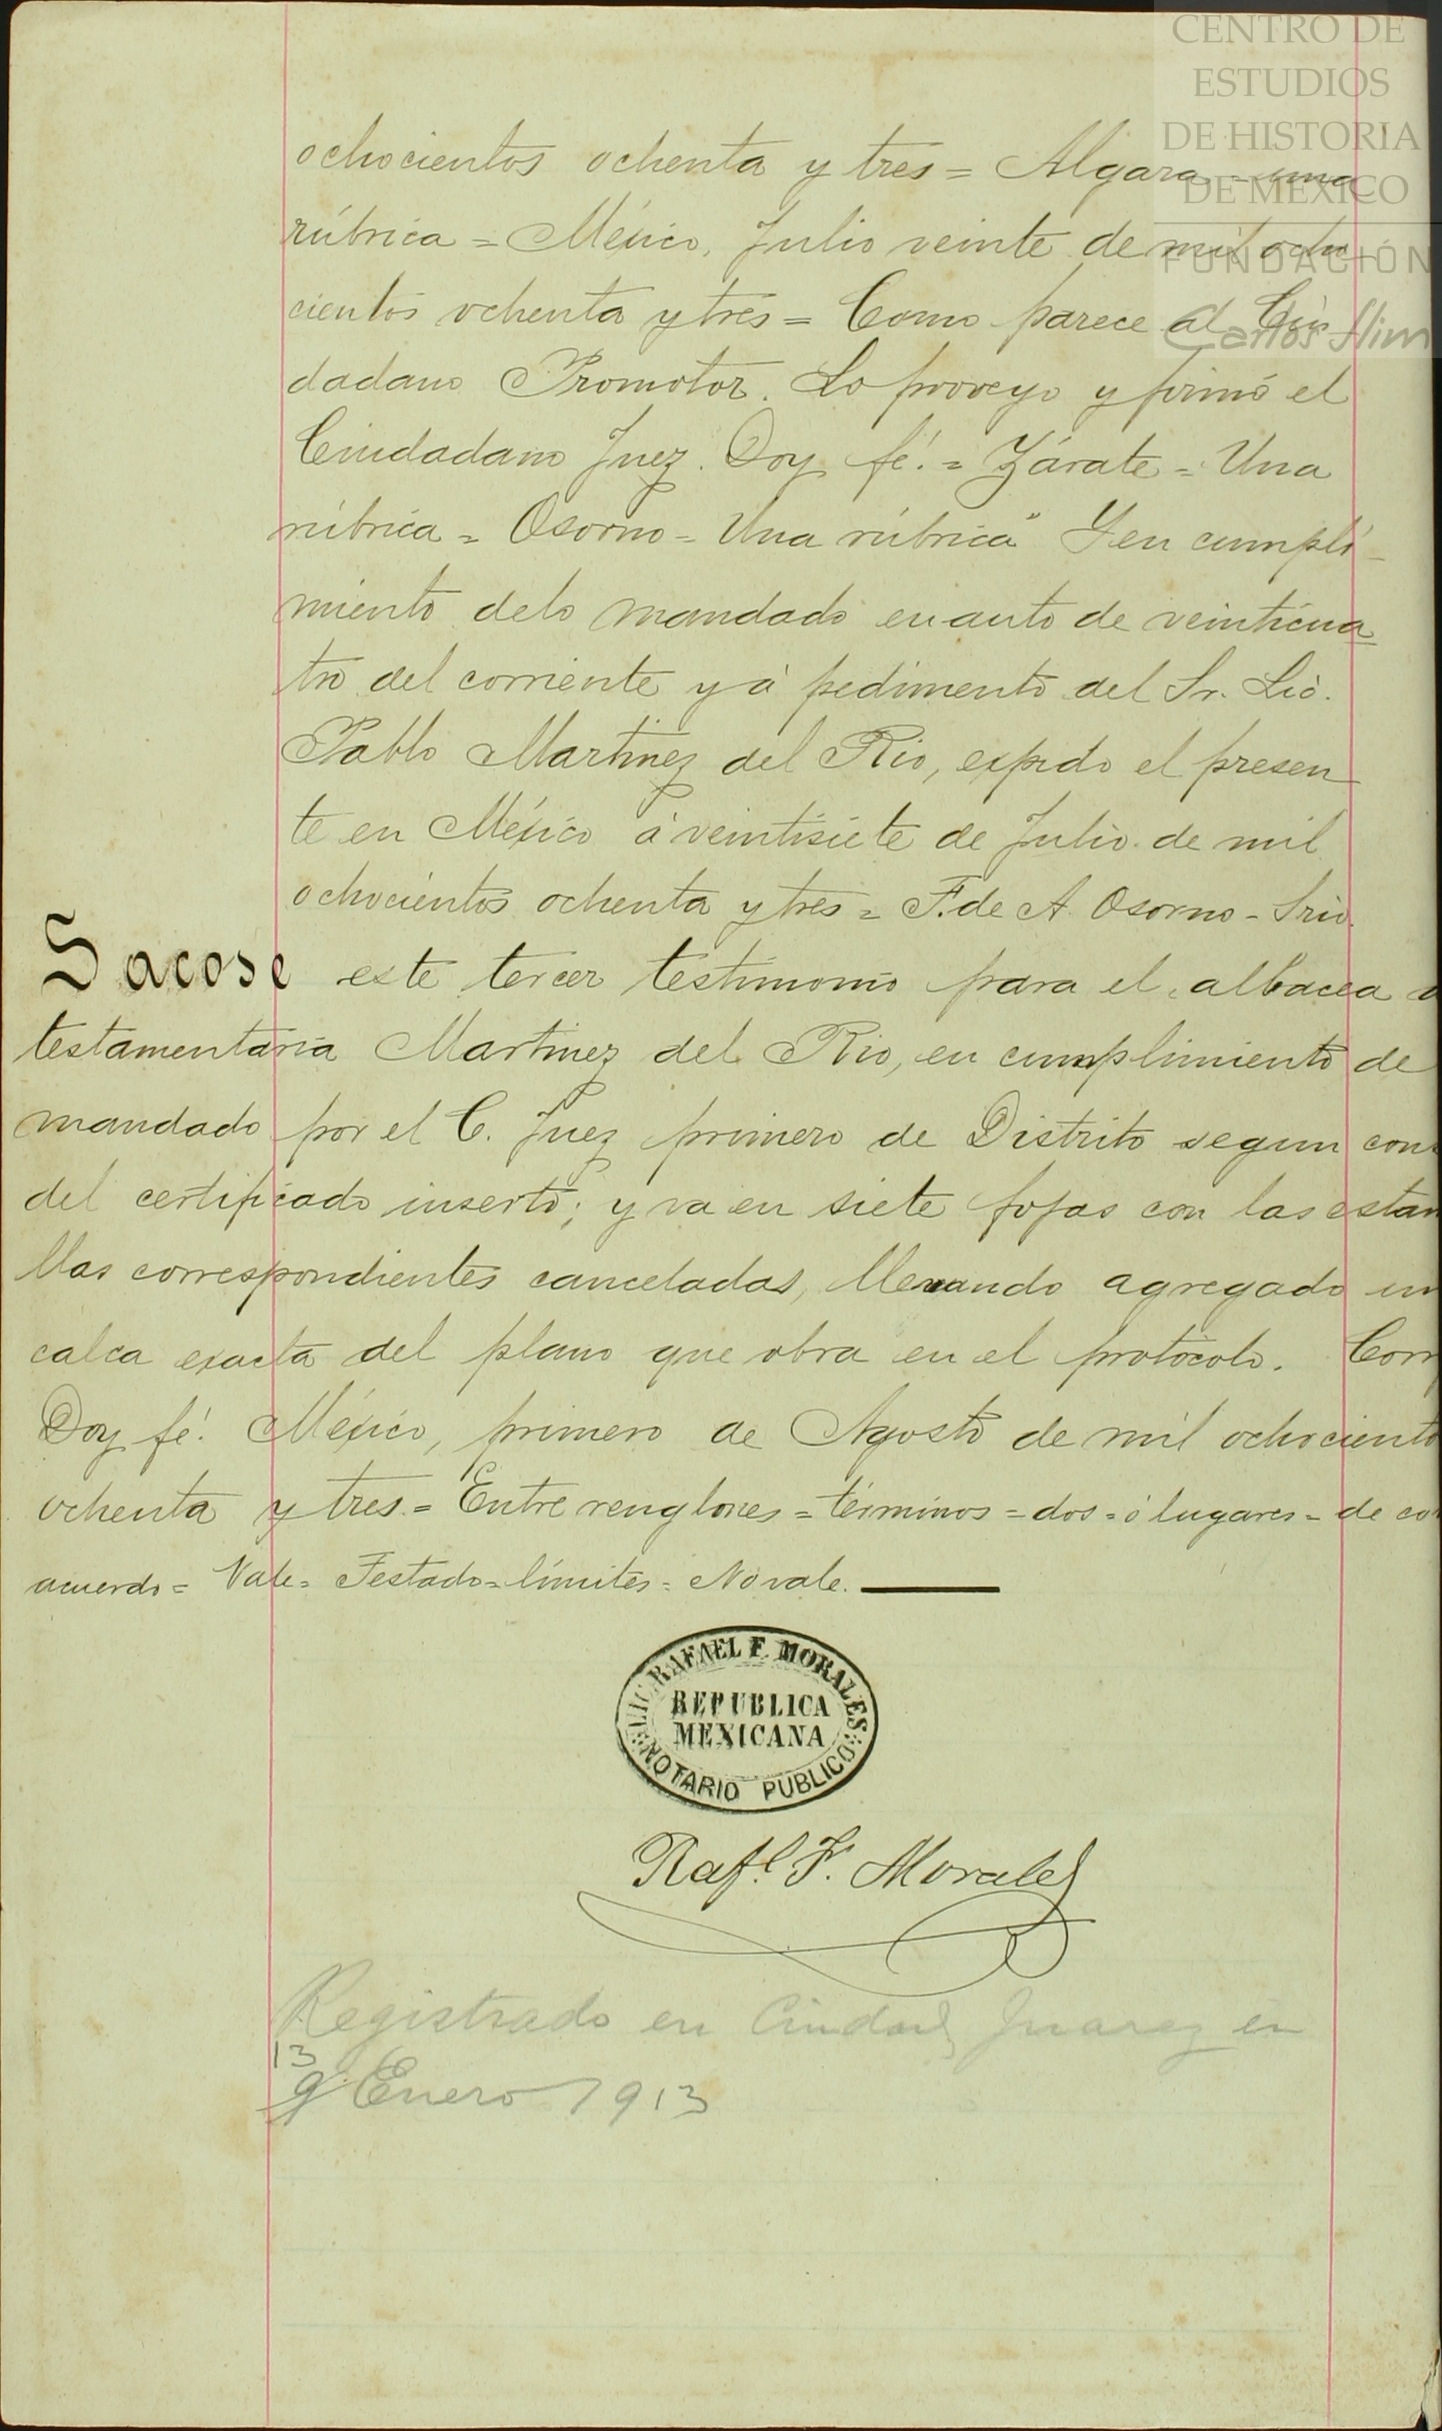 CENTRO DE
ESTUDIOS
DE HISTORIA
DE MÉXICO
FUNDACIÓN
Carlos Slim
ochocientos ochenta y tres = Algara = una
rúbrica = México, Julio veinte de mil ocho
cientos ochenta y tres = Como parece al Ciu
dadano Promotor. Lo proveyo y firmó el
Ciudadano Juez. Doy fé. = Zárate = Una
rúbrica = Osorno = Una rúbrica" Y en cumpli-
miento delo mandado en auto de veinticua
tro del corriente y á pedimento del Sr. Lic.
Pablo Martinez del Rio, expido el presen
te en México á veintisiete de Julio de mil
ochocientos ochenta y tres = F. de A. Osorno - Srio.
Sacose este tercer testimonio para el albacea
testamentaria Martinez del Rio, en cumplimiento de
mandado por el C. Juez primero de Distrito segun con
del certificado inserto; y va en siete fojas con las estam
llas correspondientes canceladas, llevando agregado un
calca exacta del plano que obra en el protocolo. Corr
Doy fé. México, primero de Agosto de mil ochociento
ochenta y tres. = Entre renglones = términos = dos = ó lugares = de co
acuerdo = Vale = Testado = límites = No vale.
LIC. RAFAEL F. MORALES
REPUBLICA
MEXICANA
NOTARIO PUBLICO
Raf.l F. Morales
Registrado en Ciudad Juarez en
13
9 Enero 1913